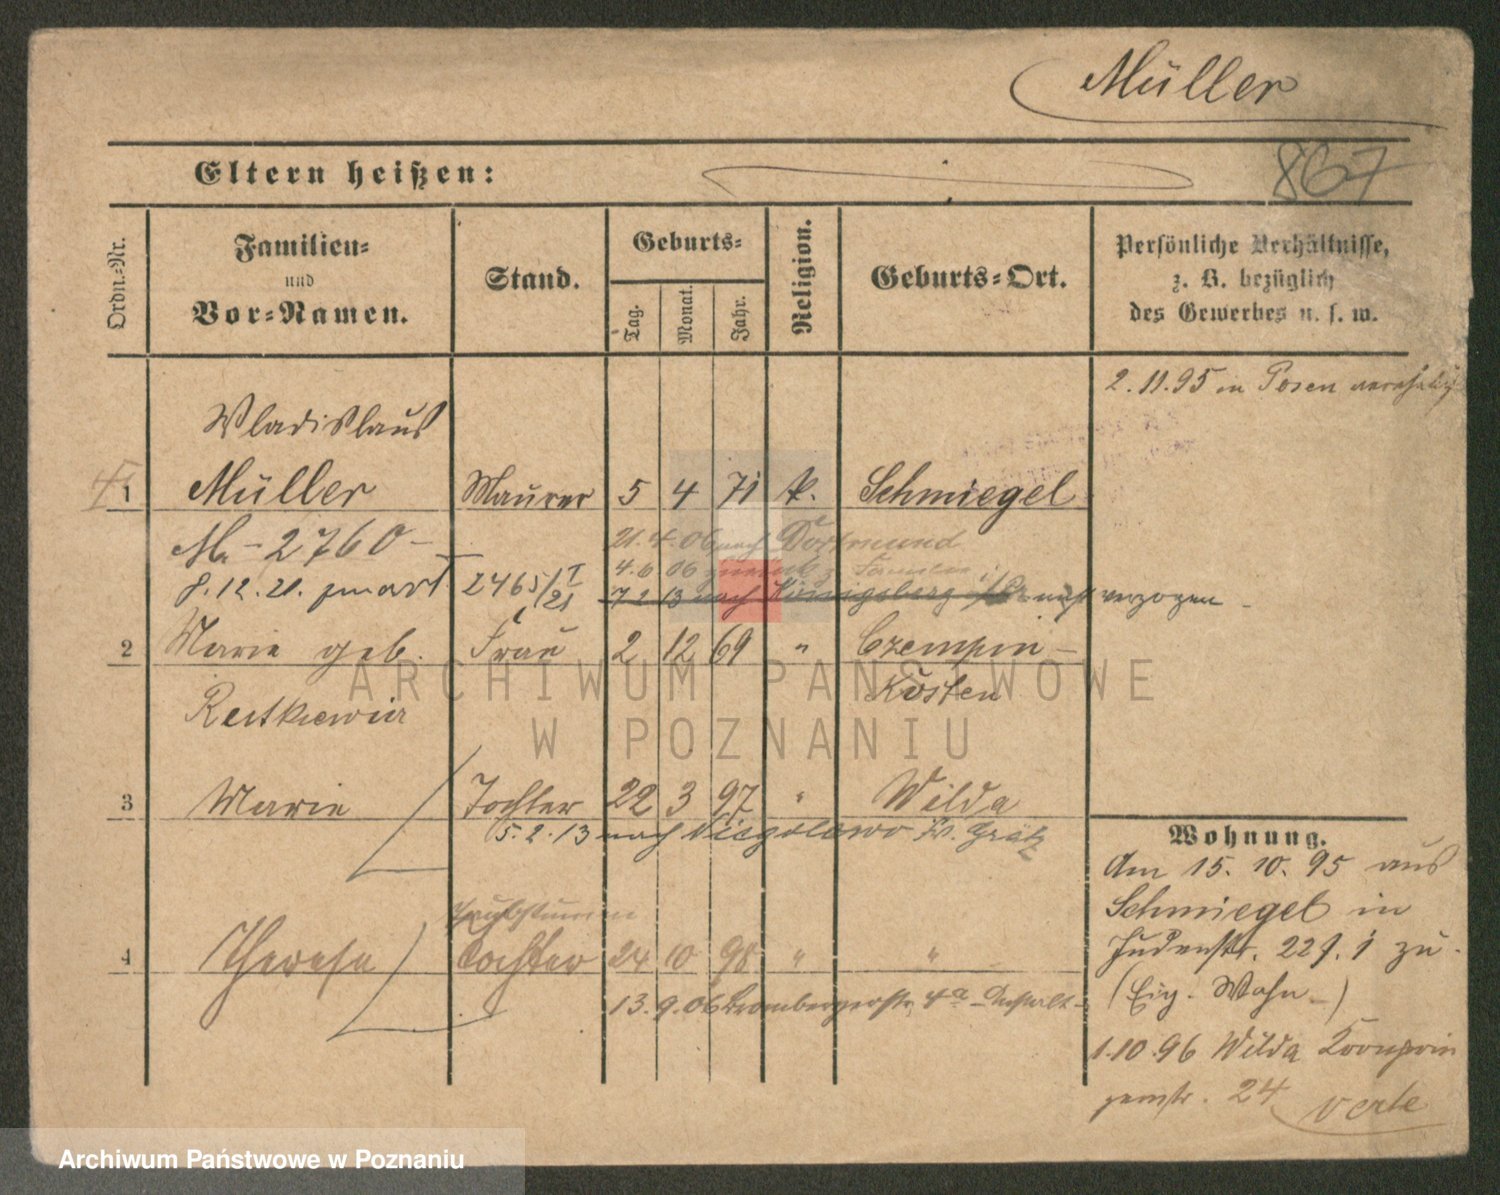 Müller
867
Eltern heißen:
Ordn.=Nr.
Familien=
und
Vor=Namen.
Stand.
Geburts=
Tag.
Monat.
Jahr.
Religion.
Geburts=Ort.
Persönliche Verhältnisse,
z. B. bezüglich
des Gewerbes u. s. w.
2.11.95 in Posen
Wladislaus
1 Müller Maurer 5 4 71 k. Schmiegel
M. - 2760 -
21.4.06 nach Dortmund
4.6 06 zurück z. Familie
2465/21
7 2 13 nach Königsberg nicht verzogen
2 Marie geb. Frau 2 12 69 " Czempin -
Kosten
3 Marie Tochter 22 3 97 " Wilda
5.2.13 nach Kr. Grätz
Taubstumm
4 Therese Tochter 24 10 98 " "
13.9.06 Brombergerstr. 4a - Anstalt -
Wohnung.
Am 15. 10. 95 aus
Schmiegel in
Judenstr. 22 I. i zu.
(Eig. Wohn.)
1.10 96 Wilda Kronprin
zenstr. 24
verte
ARCHIWUM PAŃSTWOWE
W POZNANIU
Archiwum Państwowe w Poznaniu